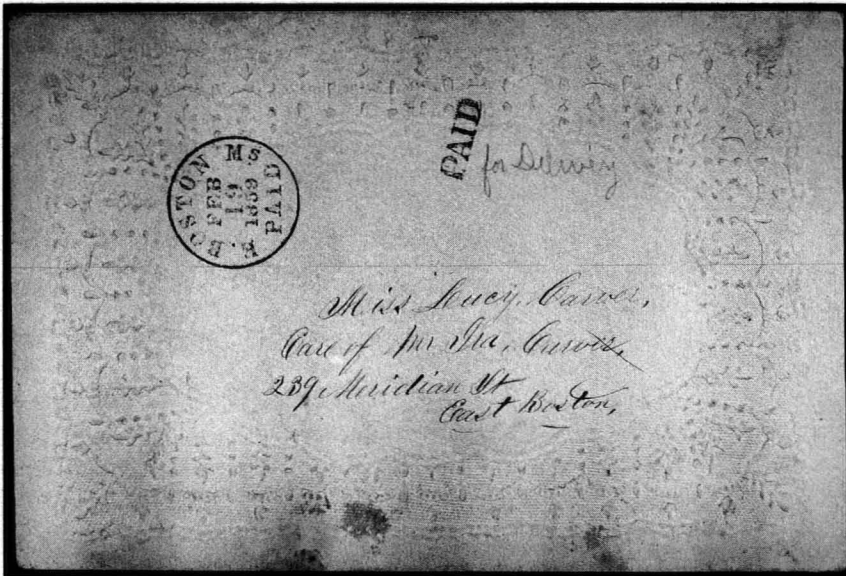 E. BOSTON Ms
FEB
19
1859
PAID
PAID
for Delivery
Miss Lucy Carver,
Care of Mr Ira, Carver,
239 Meridian St
East Boston,